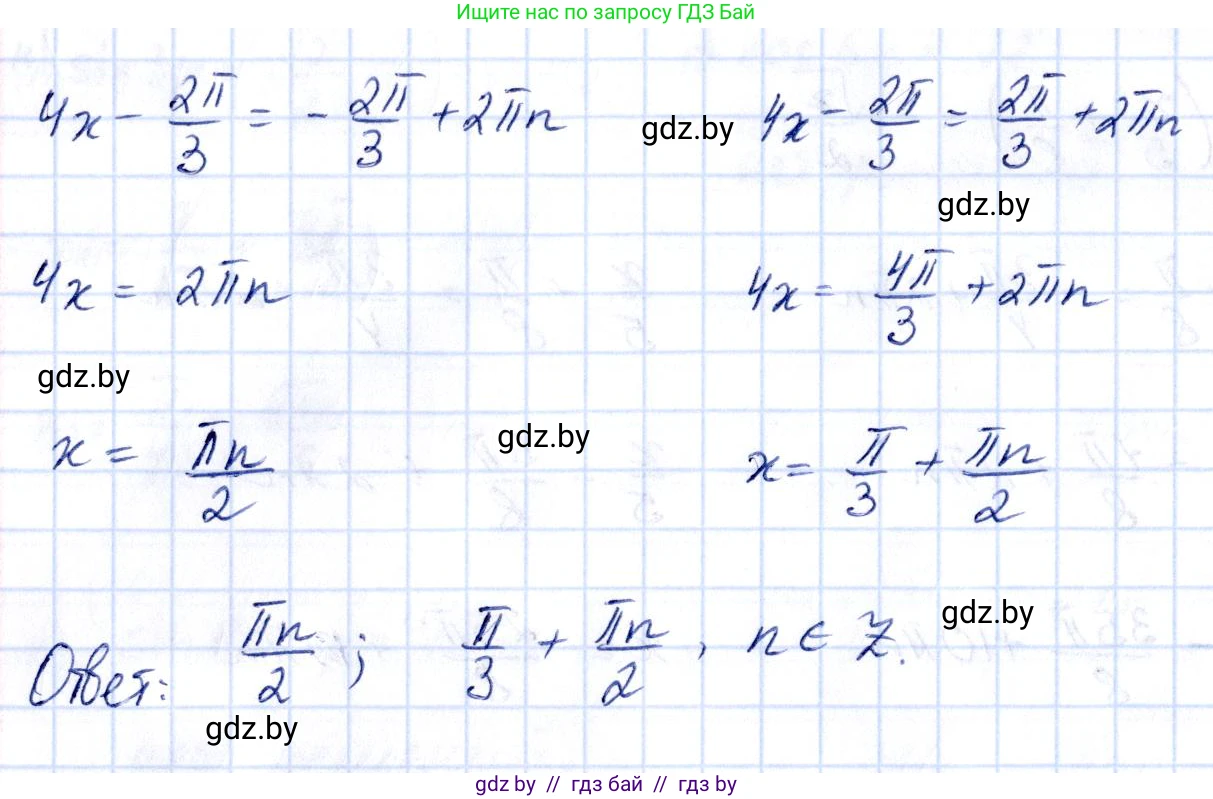 Ищите нас по запросу ГДЗ Бай
4x - 2π/3 = - 2π/3 + 2πn gdz.by 4x - 2π/3 = 2π/3 + 2πn
gdz.by
4x = 2πn 4x = 4π/3 + 2πn
gdz.by
x = πn/2 gdz.by x = π/3 + πn/2
Ответ: πn/2; π/3 + πn/2, n ∈ Z. gdz.by
gdz.by
gdz by // гдз бай // гдз by